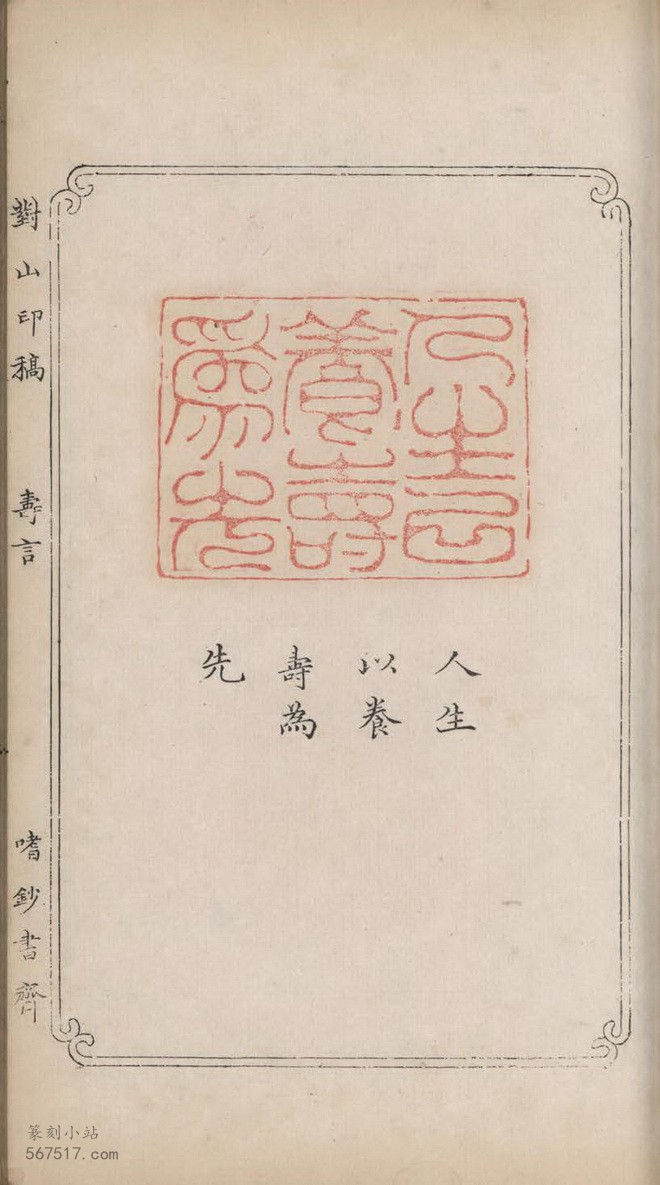 人生以養壽為先
人生
以養
壽為
先
對山印稿 壽言 嗜鈔書齋
篆刻小站
567517.com